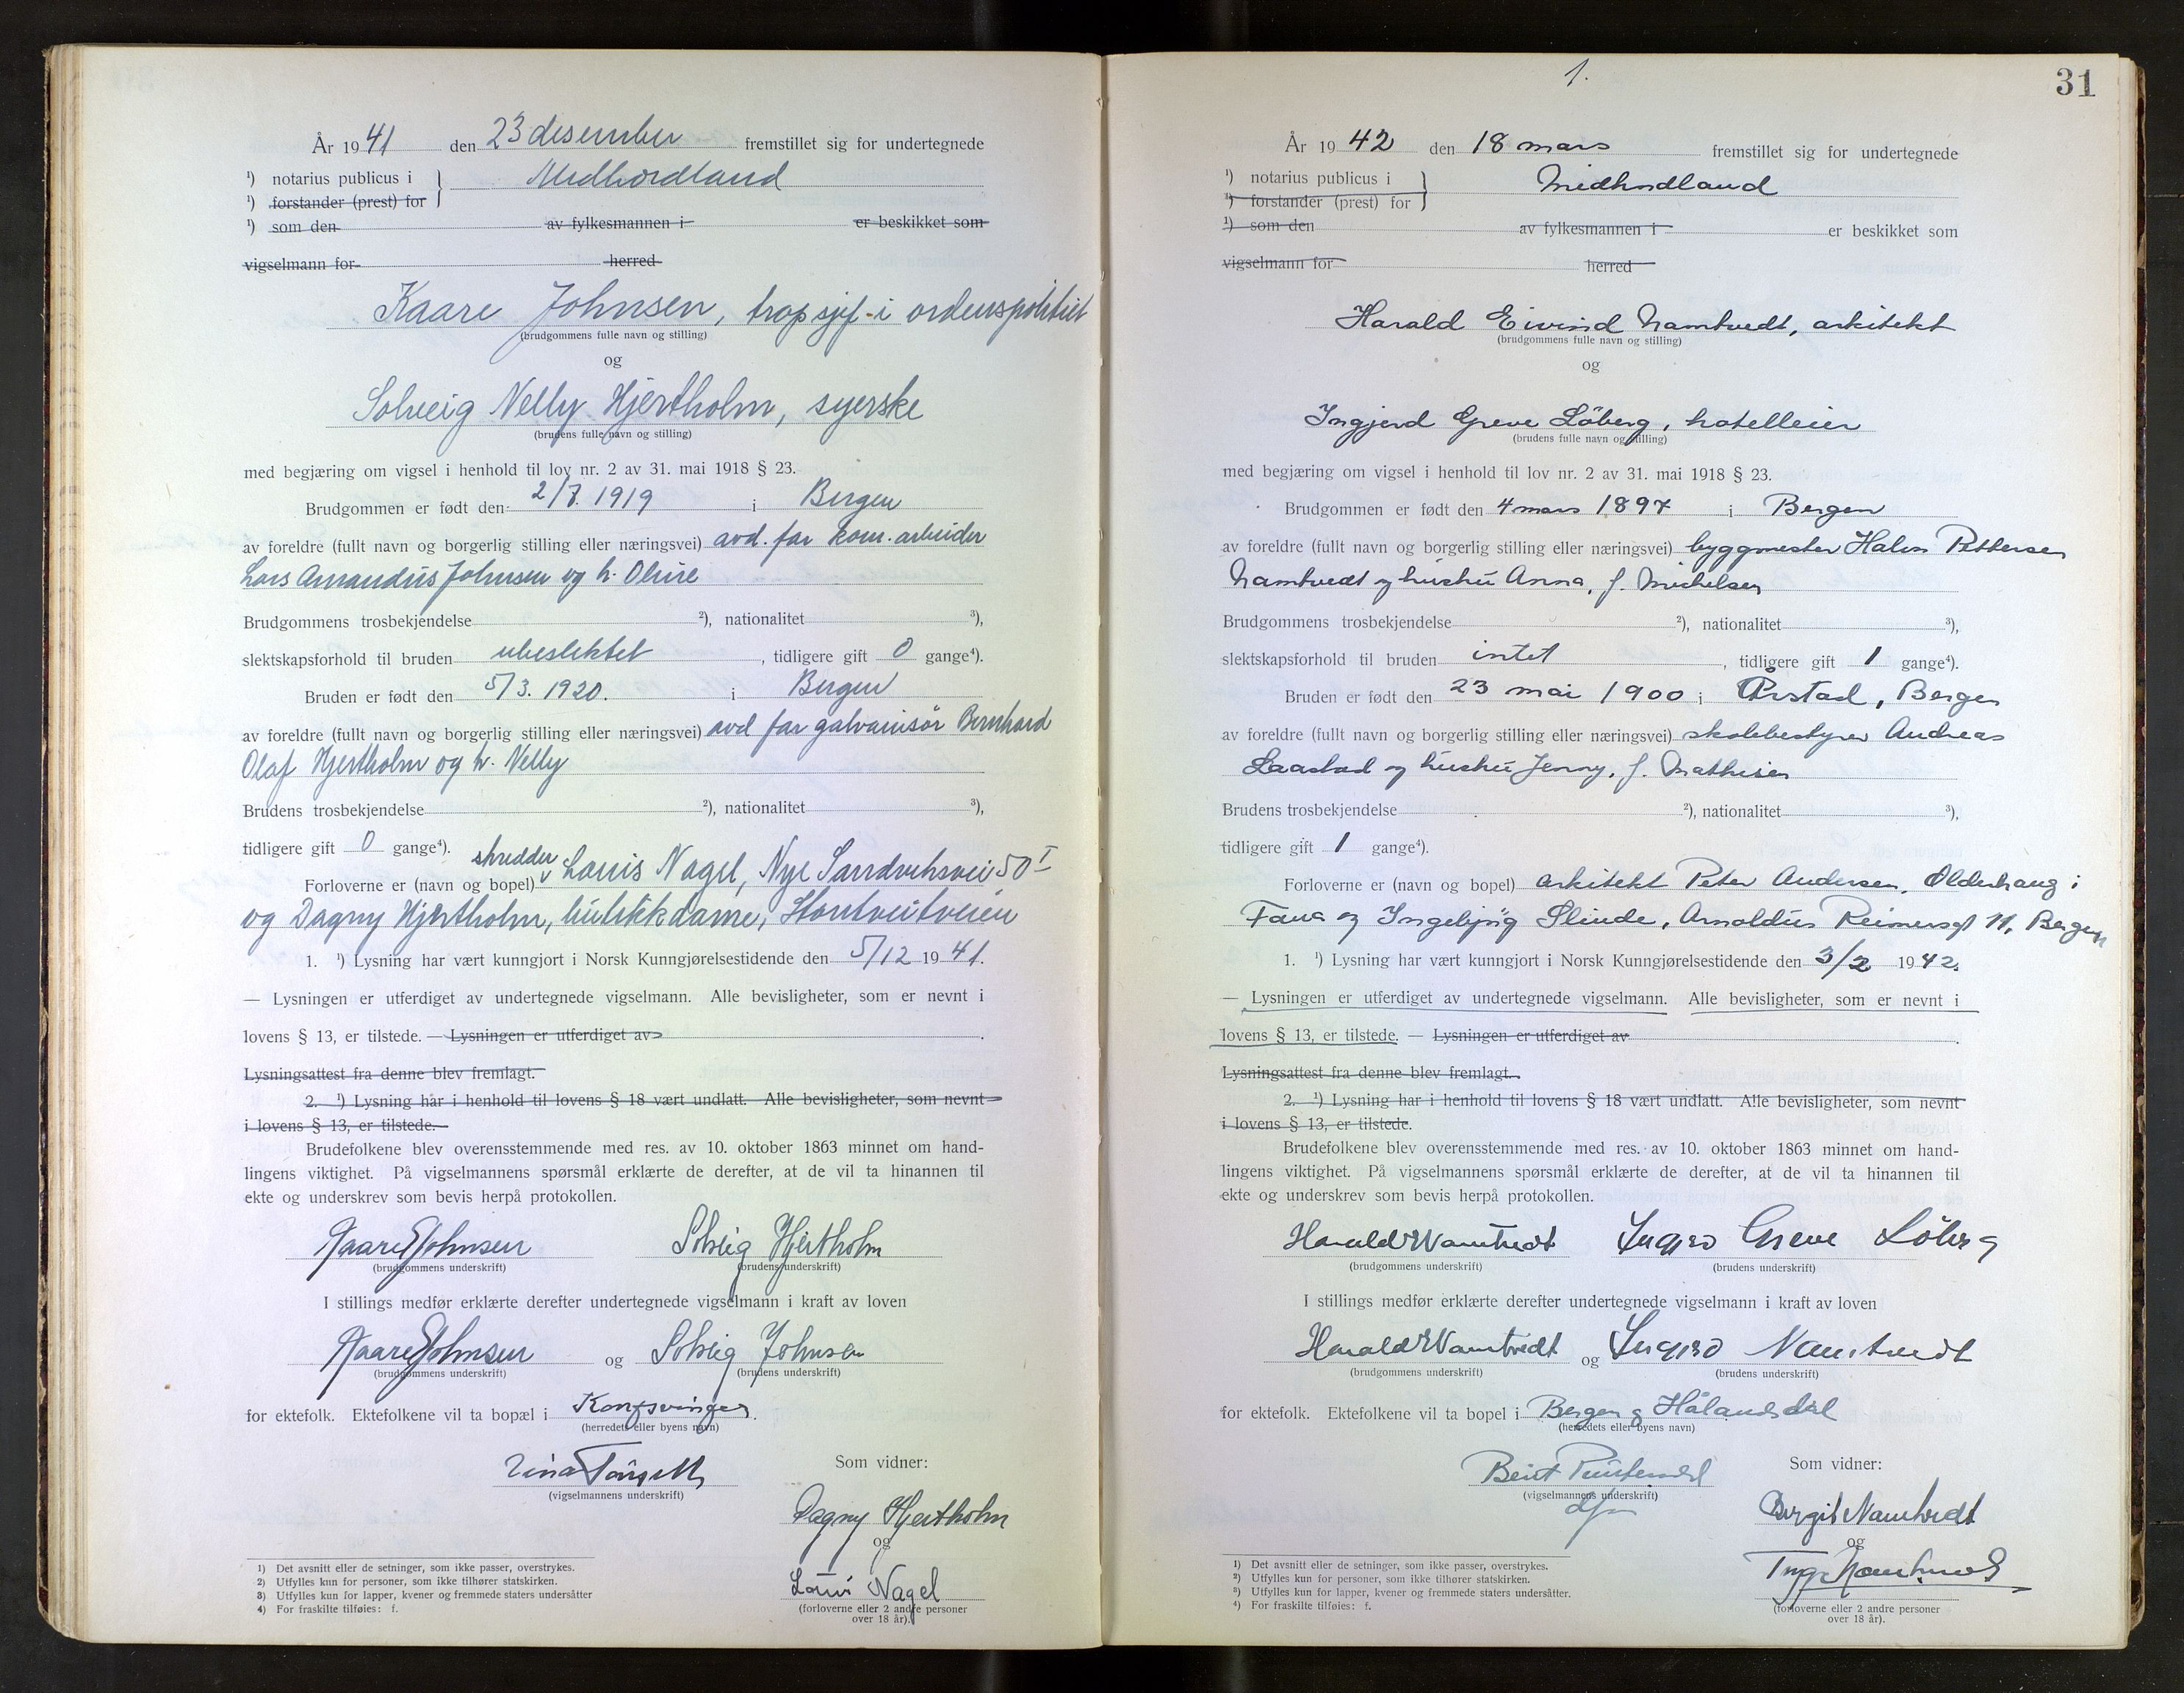 År 1941 den 23 desember fremstillet sig for undertegnede
¹) notarius publicus i } Midhordland
¹) forstander (prest) for
¹) som den av fylkesmannen i er beskikket som
vigselmann for herred
Kaare Johnsen, tropsjef i ordenspolitiet
(brudgommens fulle navn og stilling)
og
Solveig Nelly Hjertholm, syerske
(brudens fulle navn og stilling)
med begjæring om vigsel i henhold til lov nr. 2 av 31. mai 1918 § 23.
Brudgommen er født den 2/7. 1919 i Bergen
av foreldre (fullt navn og borgerlig stilling eller næringsvei) avd. far kom. arbeider
Lars Amandus Johnsen og h. Oline
Brudgommens trosbekjendelse ²), nationalitet ³),
slektskapsforhold til bruden ubeslektet, tidligere gift 0 gange⁴).
Bruden er født den 5/3. 1920. i Bergen
av foreldre (fullt navn og borgerlig stilling eller næringsvei) avd far galvanisør Bernhard
Olaf Hjertholm og h. Nelly
Brudens trosbekjendelse ²), nationalitet ³),
tidligere gift 0 gange⁴).
skredder
Forloverne er (navn og bopel) Louis Nagel, Nye Sandviksvei 50 I
og Dagny Hjertholm, butikkdame, Storetveitveien
1. ¹) Lysning har vært kunngjort i Norsk Kunngjørelsestidende den 5/12 1941.
— Lysningen er utferdiget av undertegnede vigselmann. Alle bevisligheter, som er nevnt i
lovens § 13, er tilstede. — Lysningen er utferdiget av .
Lysningsattest fra denne blev fremlagt.
2. ¹) Lysning har i henhold til lovens § 18 vært undlatt. Alle bevisligheter, som nevnt
i lovens § 13, er tilstede.
Brudefolkene blev overensstemmende med res. av 10. oktober 1863 minnet om hand-
lingens viktighet. På vigselmannens spørsmål erklærte de derefter, at de vil ta hinannen til
ekte og underskrev som bevis herpå protokollen.
Kaare Johnsen Solveig Hjertholm
(brudgommens underskrift) (brudens underskrift)
I stillings medfør erklærte derefter undertegnede vigselmann i kraft av loven
Kaare Johnsen og Solveig Johnsen
(brudgommens underskrift) (brudens underskrift)
for ektefolk. Ektefolkene vil ta bopæl i Kongsvinger.
(herredets eller byens navn)
Som vidner:
(vigselmannens underskrift)
Dagny Hjertholm
og
Louis Nagel
(forloverne eller 2 andre personer
over 18 år).
1) Det avsnitt eller de setninger, som ikke passer, overstrykes.
2) Utfylles kun for personer, som ikke tilhører statskirken.
3) Utfylles kun for lapper, kvener og fremmede staters undersåtter
4) For fraskilte tilføies: f.
1.
31
År 1942 den 18 mars fremstillet sig for undertegnede
¹) notarius publicus i } Midhordland
¹) forstander (prest) for
¹) som den av fylkesmannen i er beskikket som
vigselmann for herred
Harald Eivind Namtvedt, arkitekt
(brudgommens fulle navn og stilling)
og
Ingjerd Greve Löberg, hotelleier
(brudens fulle navn og stilling)
med begjæring om vigsel i henhold til lov nr. 2 av 31. mai 1918 § 23.
Brudgommen er født den 4 mars 1897 i Bergen
av foreldre (fullt navn og borgerlig stilling eller næringsvei) byggmester Halvor Pettersen
Namtvedt og hustru Anna, f. Michelsen
Brudgommens trosbekjendelse ²), nationalitet ³),
slektskapsforhold til bruden intet, tidligere gift 1 gange⁴).
Bruden er født den 23 mai 1900 i Årstad, Bergen
av foreldre (fullt navn og borgerlig stilling eller næringsvei) skolebestyrer Andreas
Laastad og hustru Jenny, f. Mathisen
Brudens trosbekjendelse ²), nationalitet ³),
tidligere gift 1 gange⁴).
Forloverne er (navn og bopel) arkitekt Peter Andersen, Olderhaug i
Fana og Ingebjørg Slinde, Arnoldus Reimersgt 11, Bergen
1. ¹) Lysning har vært kunngjort i Norsk Kunngjørelsestidende den 3/2 1942.
— Lysningen er utferdiget av undertegnede vigselmann. Alle bevisligheter, som er nevnt i
lovens § 13, er tilstede. — Lysningen er utferdiget av .
Lysningsattest fra denne blev fremlagt.
2. ¹) Lysning har i henhold til lovens § 18 vært undlatt. Alle bevisligheter, som nevnt
i lovens § 13, er tilstede.
Brudefolkene blev overensstemmende med res. av 10. oktober 1863 minnet om hand-
lingens viktighet. På vigselmannens spørsmål erklærte de derefter, at de vil ta hinannen til
ekte og underskrev som bevis herpå protokollen.
Harald E Namtvedt Ingjerd Greve Löberg
(brudgommens underskrift) (brudens underskrift)
I stillings medfør erklærte derefter undertegnede vigselmann i kraft av loven
Harald E Namtvedt og Ingjerd Namtvedt
(brudgommens underskrift) (brudens underskrift)
for ektefolk. Ektefolkene vil ta bopel i Bergen og Hålandsdal
(herredets eller byens navn)
Som vidner:
(vigselmannens underskrift)
Birgit Namtvedt
og
Namtvedt
(forloverne eller 2 andre personer
over 18 år).
¹) Det avsnitt eller de setninger, som ikke passer, overstrykes.
²) Utfylles kun for personer, som ikke tilhører statskirken.
³) Utfylles kun for lapper, kvener og fremmede staters undersåtter.
⁴) For fraskilte tilføies: f.